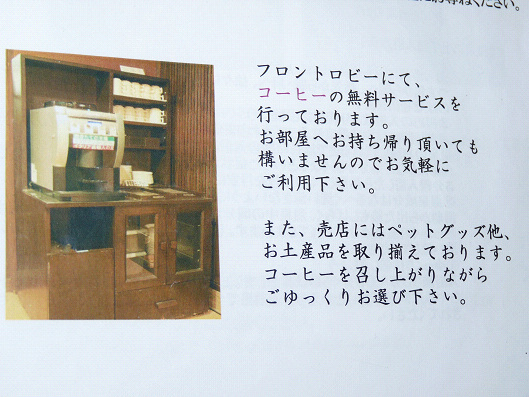 お尋ねください。
フロントロビーにて、
コーヒーの無料サービスを
行っております。
お部屋へお持ち帰り頂いても
構いませんのでお気軽に
ご利用下さい。
また、売店にはペットグッズ他、
お土産品を取り揃えております。
コーヒーを召し上がりながら
ごゆっくりお選び下さい。